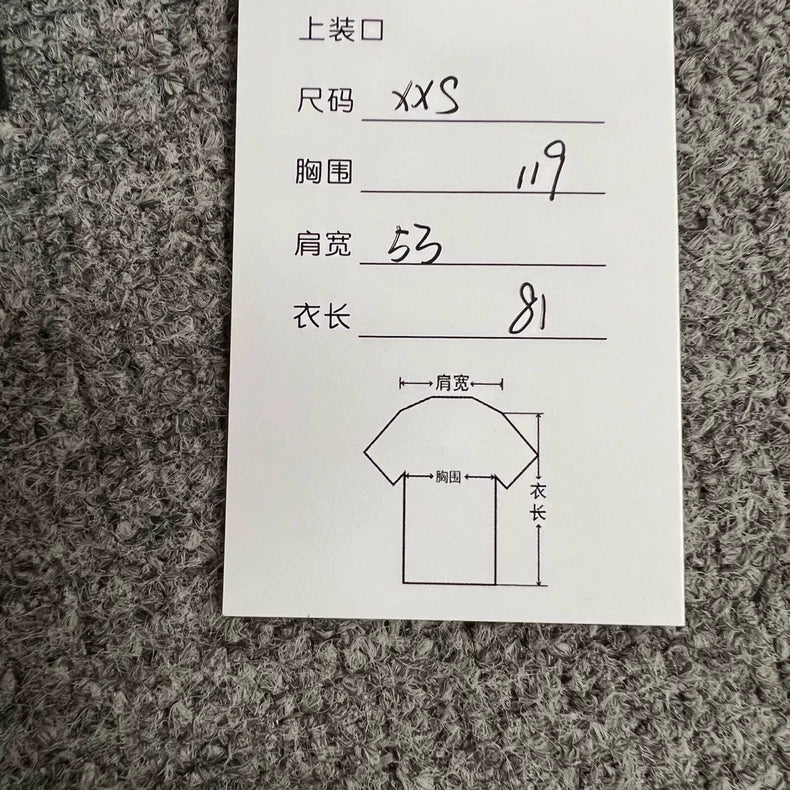 上装□
尺码 XXS
胸围 119
肩宽 53
衣长 81
肩宽
胸围
衣长